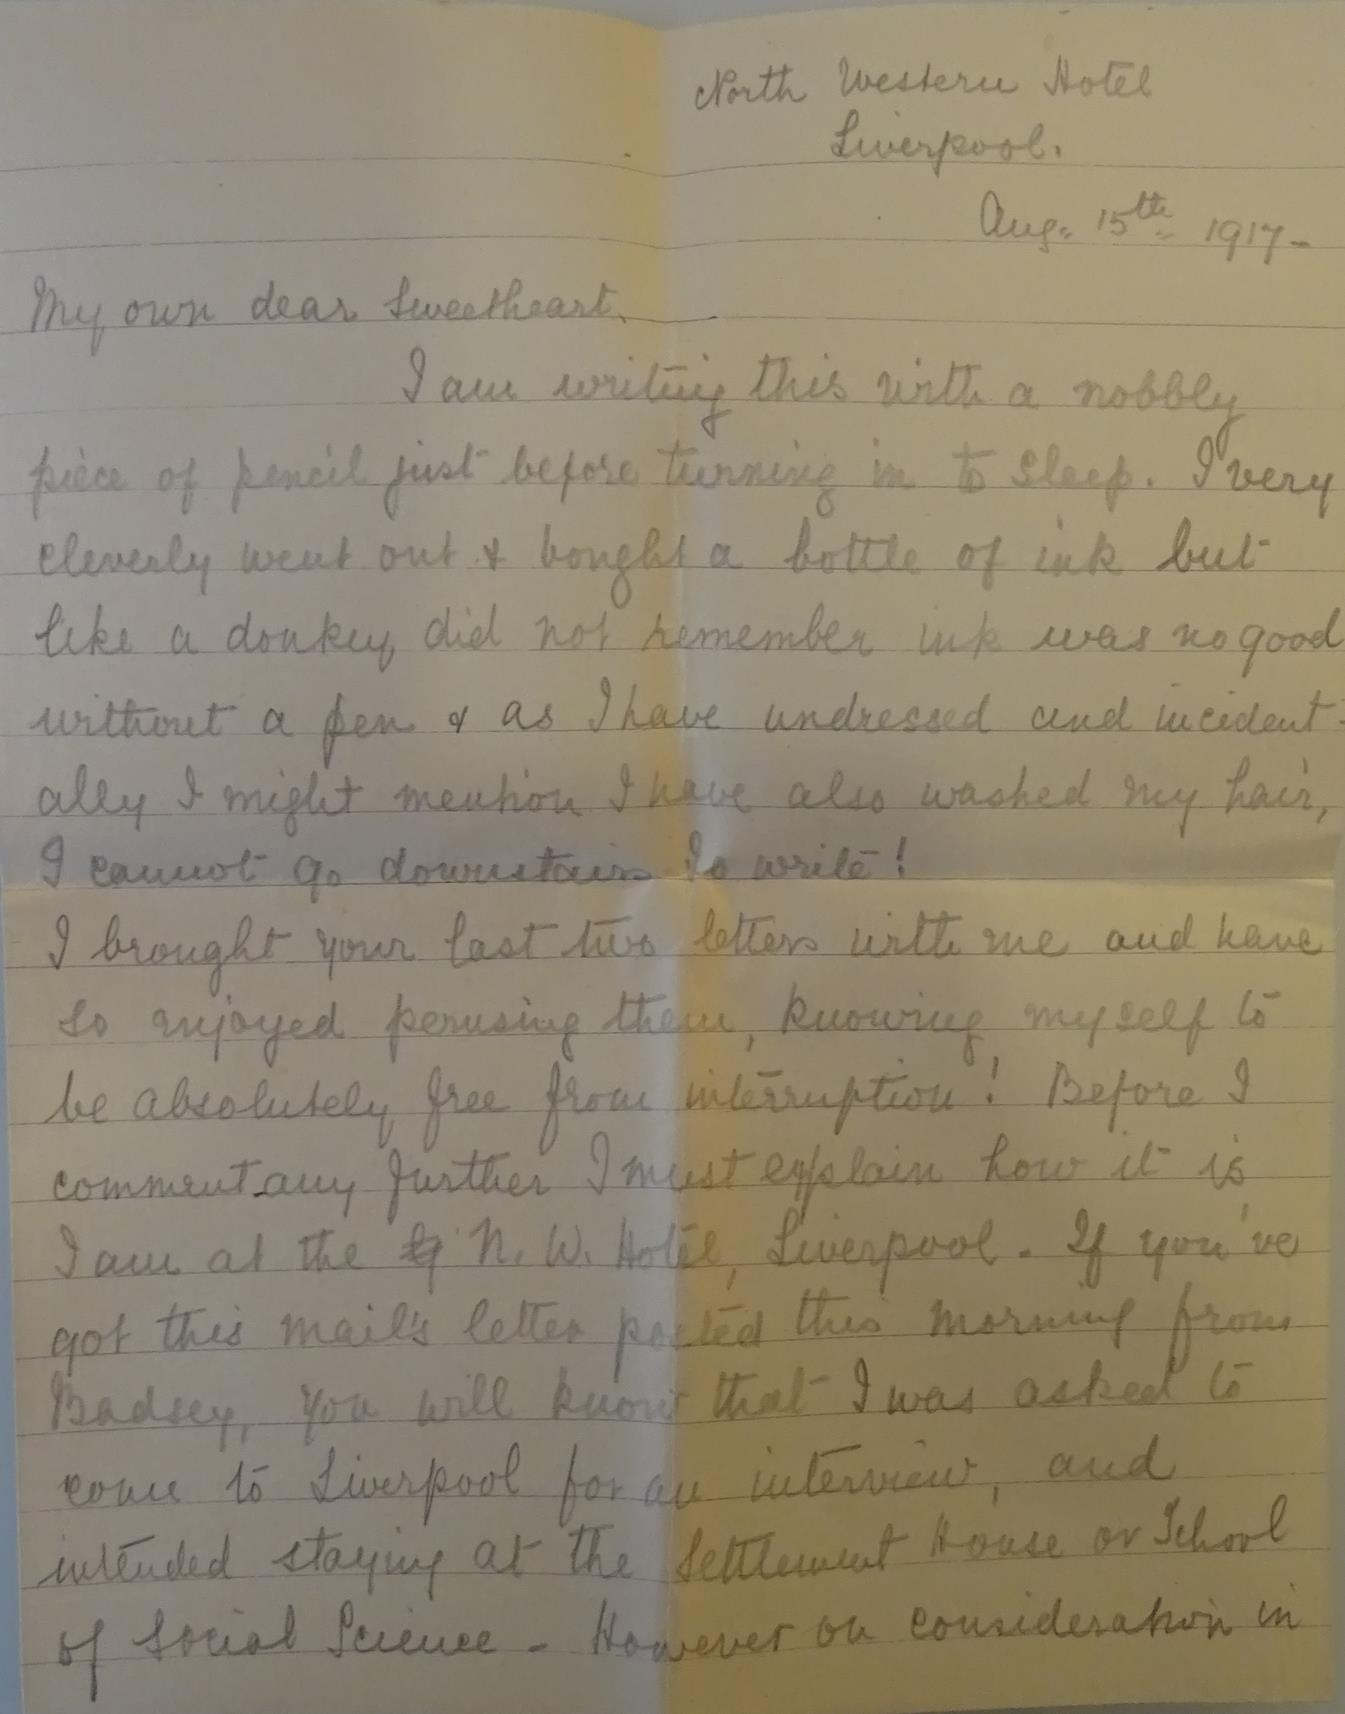 North Western Hotel
Liverpool.
Aug. 15th 1917-
My own dear Sweetheart,
I am writing this with a nobbly
piece of pencil just before turning in to sleep. I very
cleverly went out & bought a bottle of ink but
like a donkey, did not remember ink was no good
without a pen & as I have undressed and incident-
ally I might mention I have also washed my hair,
I cannot go downstairs to write!
I brought your last two letters with me and have
so enjoyed perusing them, knowing myself to
be absolutely free from interruption! Before I
comment any further I must explain how it is
I am at the N. W. Hotel, Liverpool. If you've
got this mail's letter posted this morning from
Badsey, you will know that I was asked to
come to Liverpool for an interview, and
intended staying at the Settlement House or School
of Social Science - However on consideration in